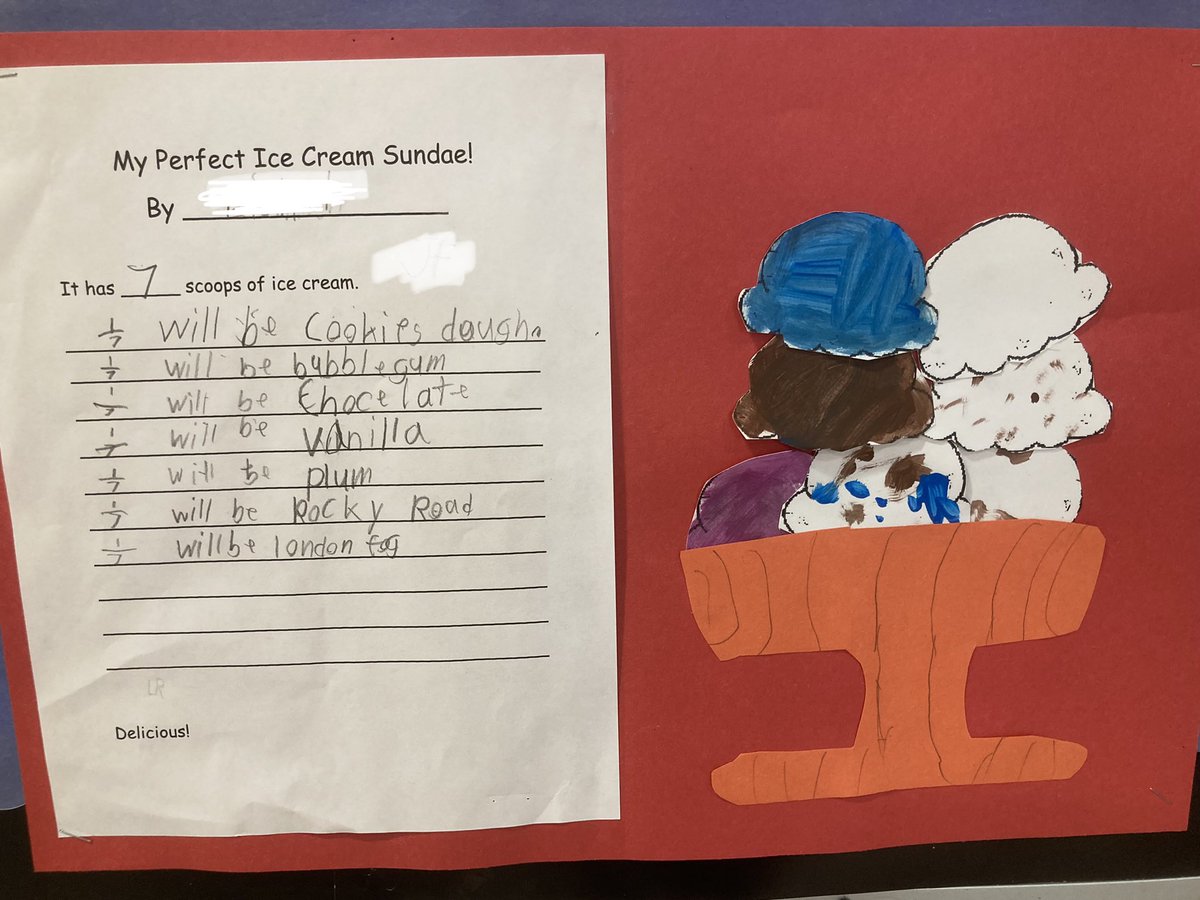 My Perfect Ice Cream Sundae!
By
It has 7 scoops of ice cream.
1/7 will be Cookies dough
1/7 will be bubblegum
1/7 will be Chocelate
1/7 will be vanilla
1/7 will be plum
1/7 will be Rocky Road
1/7 will be london fog
LR
Delicious!